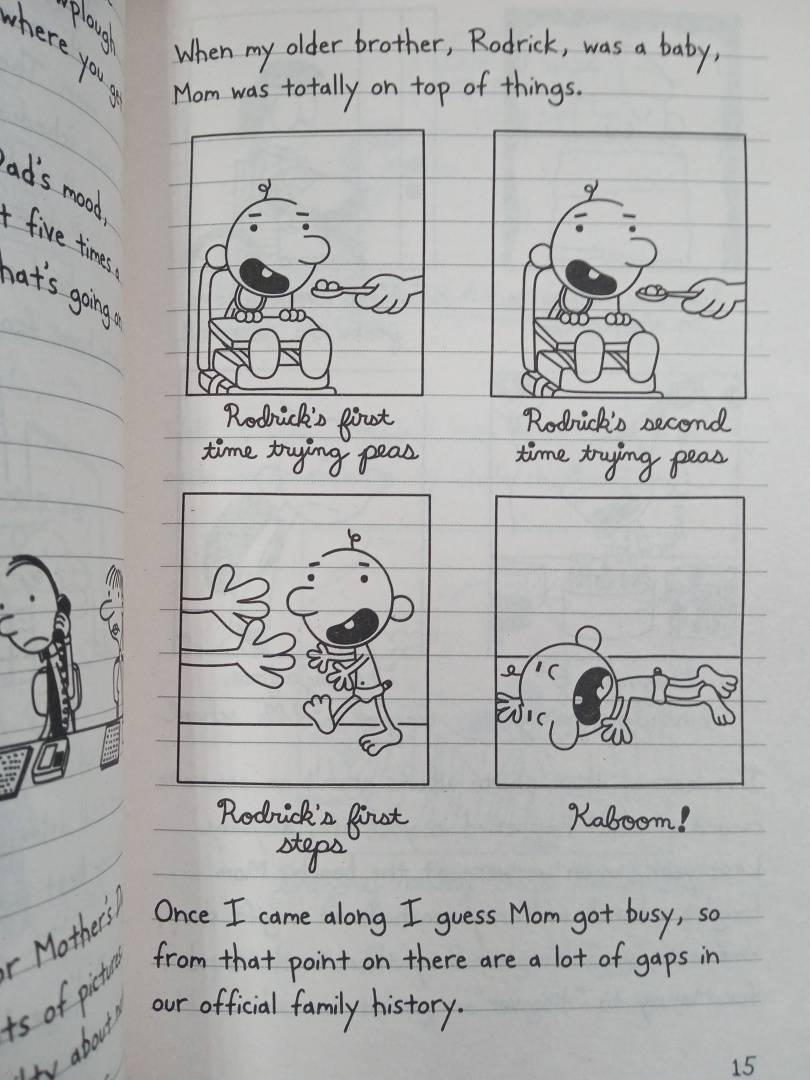 wplough
where you ge
Dad's mood,
t five times a
hat's going on
or Mother's D
ts of pictures
lty about
When my older brother, Rodrick, was a baby,
Mom was totally on top of things.
Rodrick's first
time trying peas
Rodrick's second
time trying peas
Rodrick's first
steps
Kaboom!
Once I came along I guess Mom got busy, so
from that point on there are a lot of gaps in
our official family history.
15